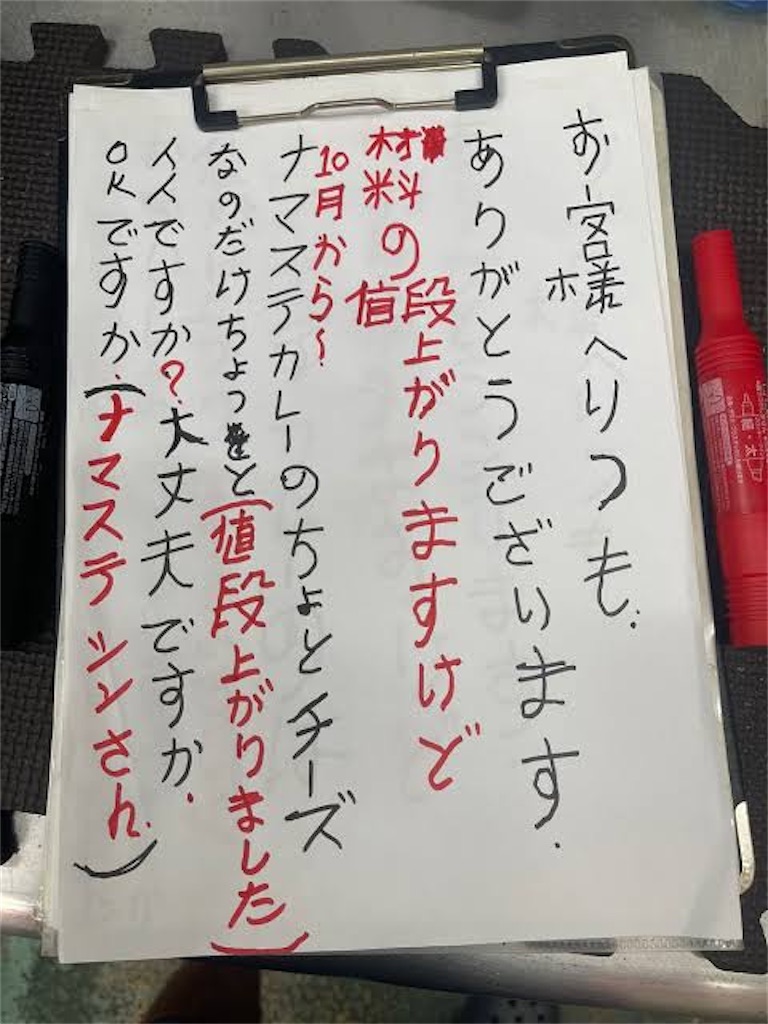 お客様へりつも.
ありがとうございます.
材料の値段上がりますけど
10月から~
ナマステカレーのちょとチーズ
なのだけちょっと(値段上がりました)
イイですか?大丈夫ですか.
OKですか.(ナマステシンさん.)